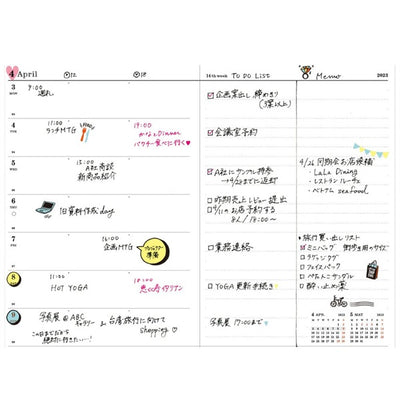 4 April
12
18
14th week
TO DO LIST
Memo
2023
3
MON
9:00
週礼
4
TUE
11:00
ランチMTG
19:00
かなとDinner
パクチー食べに行く♥
5
WED
15:00
A社商談
新商品紹介
6
THU
旧資料作成day
7
FRI
16:00
企画MTG
準備
8
SAT
11:00
HOT YOGA
18:00
恵比寿イタリアン
9
SUN
写真展@ABC
ギャラリー
& 台湾旅行に向けて
shopping ♡
この日までだから
絶対に行きたい……!
企画案出し 締めきり
(3案以上)
会議室予約
A社にサンプル持参
昨期売上レビュー提出
4/11のお店予約する
4人/18:00~
業務連絡
YOGA 更新手続き
写真展 17:00まで
4/26 同期会お店候補
・LaLa Dining
・レストラン ルーチェ
・ベトナム seafood
旅行買い出しリスト
ミニバッグ 街歩き用のサイズ
ラゲッジング
フェイスパック
ぺたんこサンダル
酔い止め薬
4 APR. 2023
5 MAY 2023